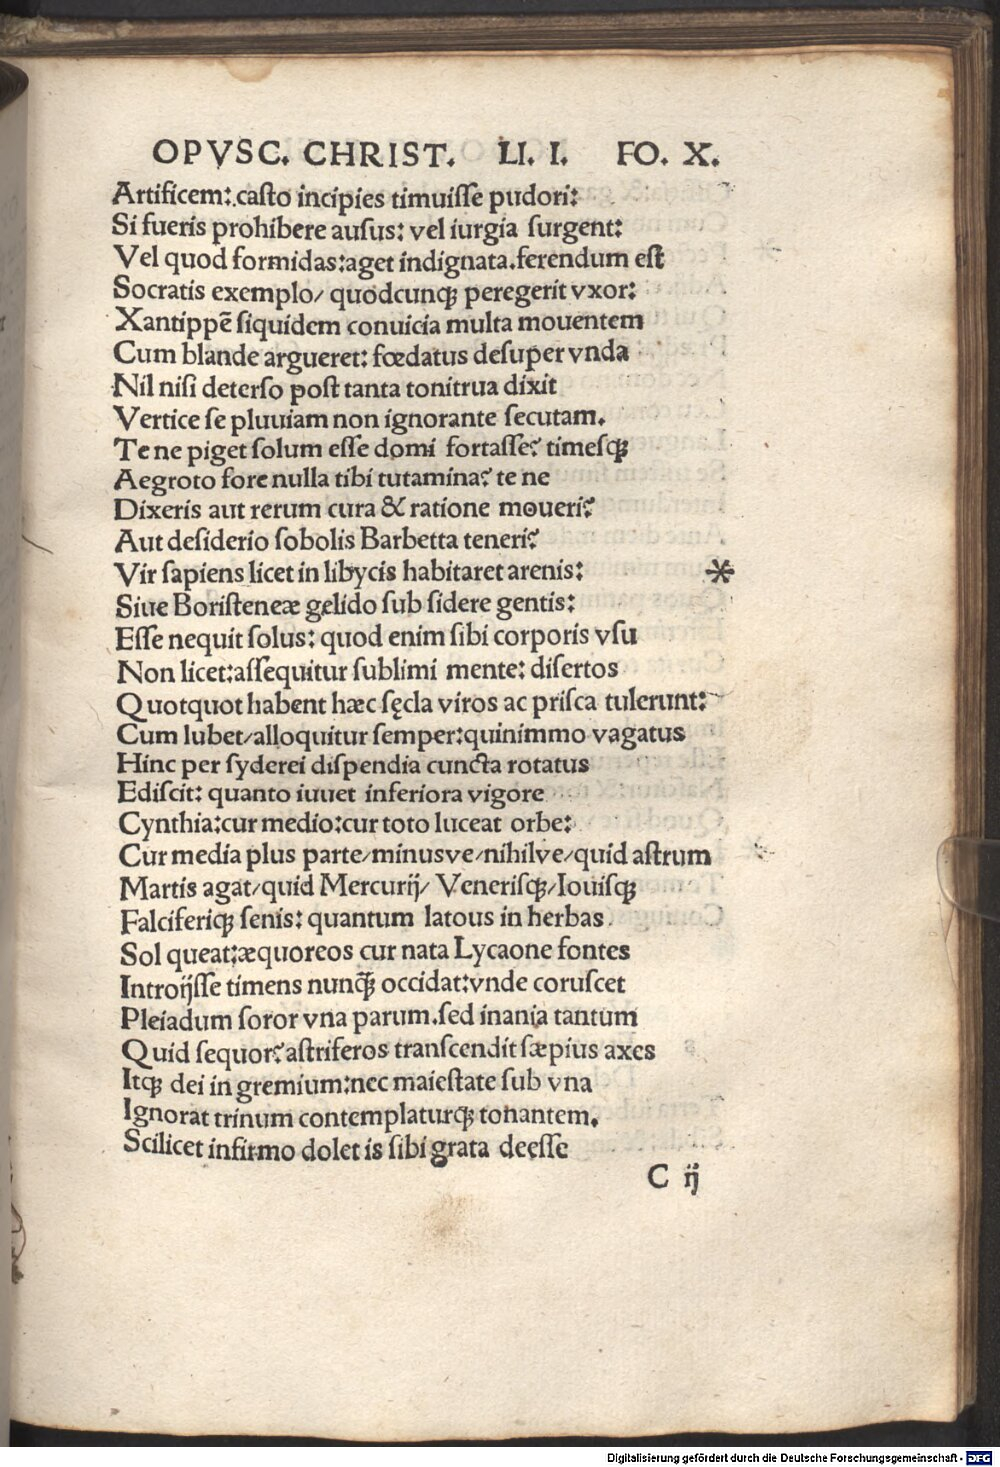 OPVSC. CHRIST. LI. I. FO. X.
Artificem:.casto incipies timuisse pudori:
Si fueris prohibere ausus: vel iurgia surgent:
Vel quod formidas:aget indignata.ferendum est
Socratis exemplo/ quodcunqꝫ peregerit vxor:
Xantippē siquidem conuicia multa mouentem
Cum blande argueret: fœdatus desuper vnda
Nil nisi deterso post tanta tonitrua dixit
Vertice se pluuiam non ignorante secutam.
Te ne piget solum esse domi fortasse? timesqꝫ
Aegroto fore nulla tibi tutamina? te ne
Dixeris aut rerum cura & ratione moueri?
Aut desiderio sobolis Barbetta teneri?
Vir sapiens licet in libycis habitaret arenis: *
Siue Boristeneæ gelido sub sidere gentis:
Esse nequit solus: quod enim sibi corporis vsu
Non licet:assequitur sublimi mente: disertos
Quotquot habent hæc sęcla viros ac prisca tulerunt:
Cum lubet/alloquitur semper:quinimmo vagatus
Hinc per syderei dispendia cuncta rotatus
Ediscit: quanto iuuet inferiora vigore
Cynthia:cur medio:cur toto luceat orbe:
Cur media plus parte/minusve/nihilve/quid astrum
Martis agat/quid Mercurij/ Venerisqꝫ/Iouisqꝫ
Falciferiqꝫ senis: quantum latous in herbas
Sol queat:æquoreos cur nata Lycaone fontes
Introijsse timens nunqꝫ̃ occidat:vnde coruscet
Pleiadum soror vna parum.sed inania tantum
Quid sequor?astriferos transcendit sæpius axes
Itqꝫ dei in gremium:nec maiestate sub vna
Ignorat trinum contemplaturqꝫ tonantem.
Scilicet infirmo dolet is sibi grata deesse
C ij
Digitalisierung gefördert durch die Deutsche Forschungsgemeinschaft - DFG